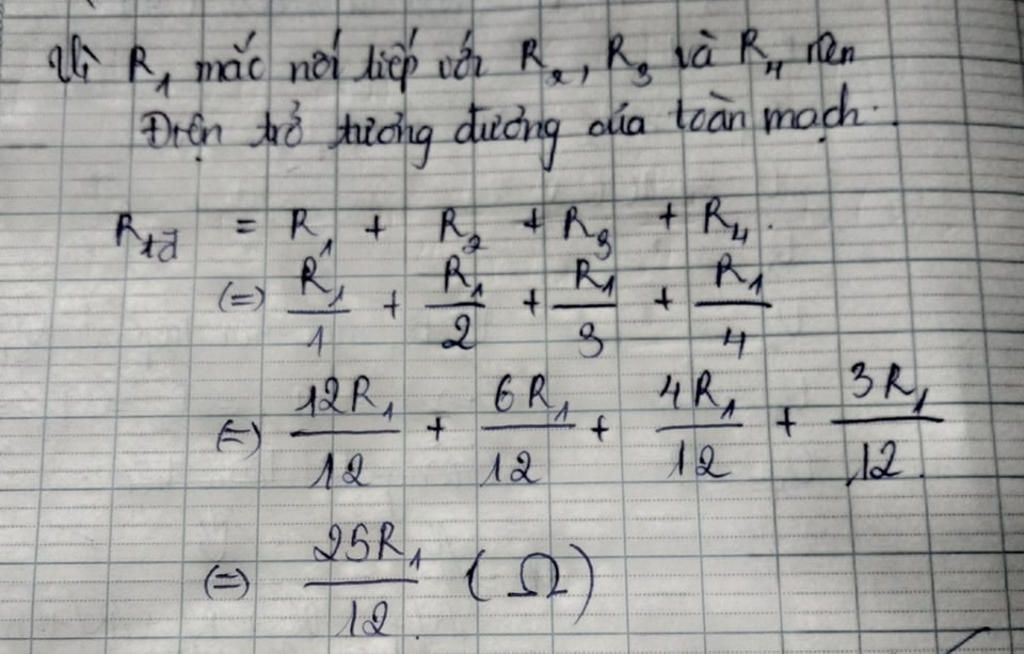 Vì R₁ mắc nối tiếp với R₂, R₃ và R₄ nên
Điện trở tương đương của toàn mạch.
R_tđ = R₁ + R₂ + R₃ + R₄.
(=) R₁/1 + R₁/2 + R₁/3 + R₁/4
(=) 12R₁/12 + 6R₁/12 + 4R₁/12 + 3R₁/12
(=) 25R₁/12 (Ω)